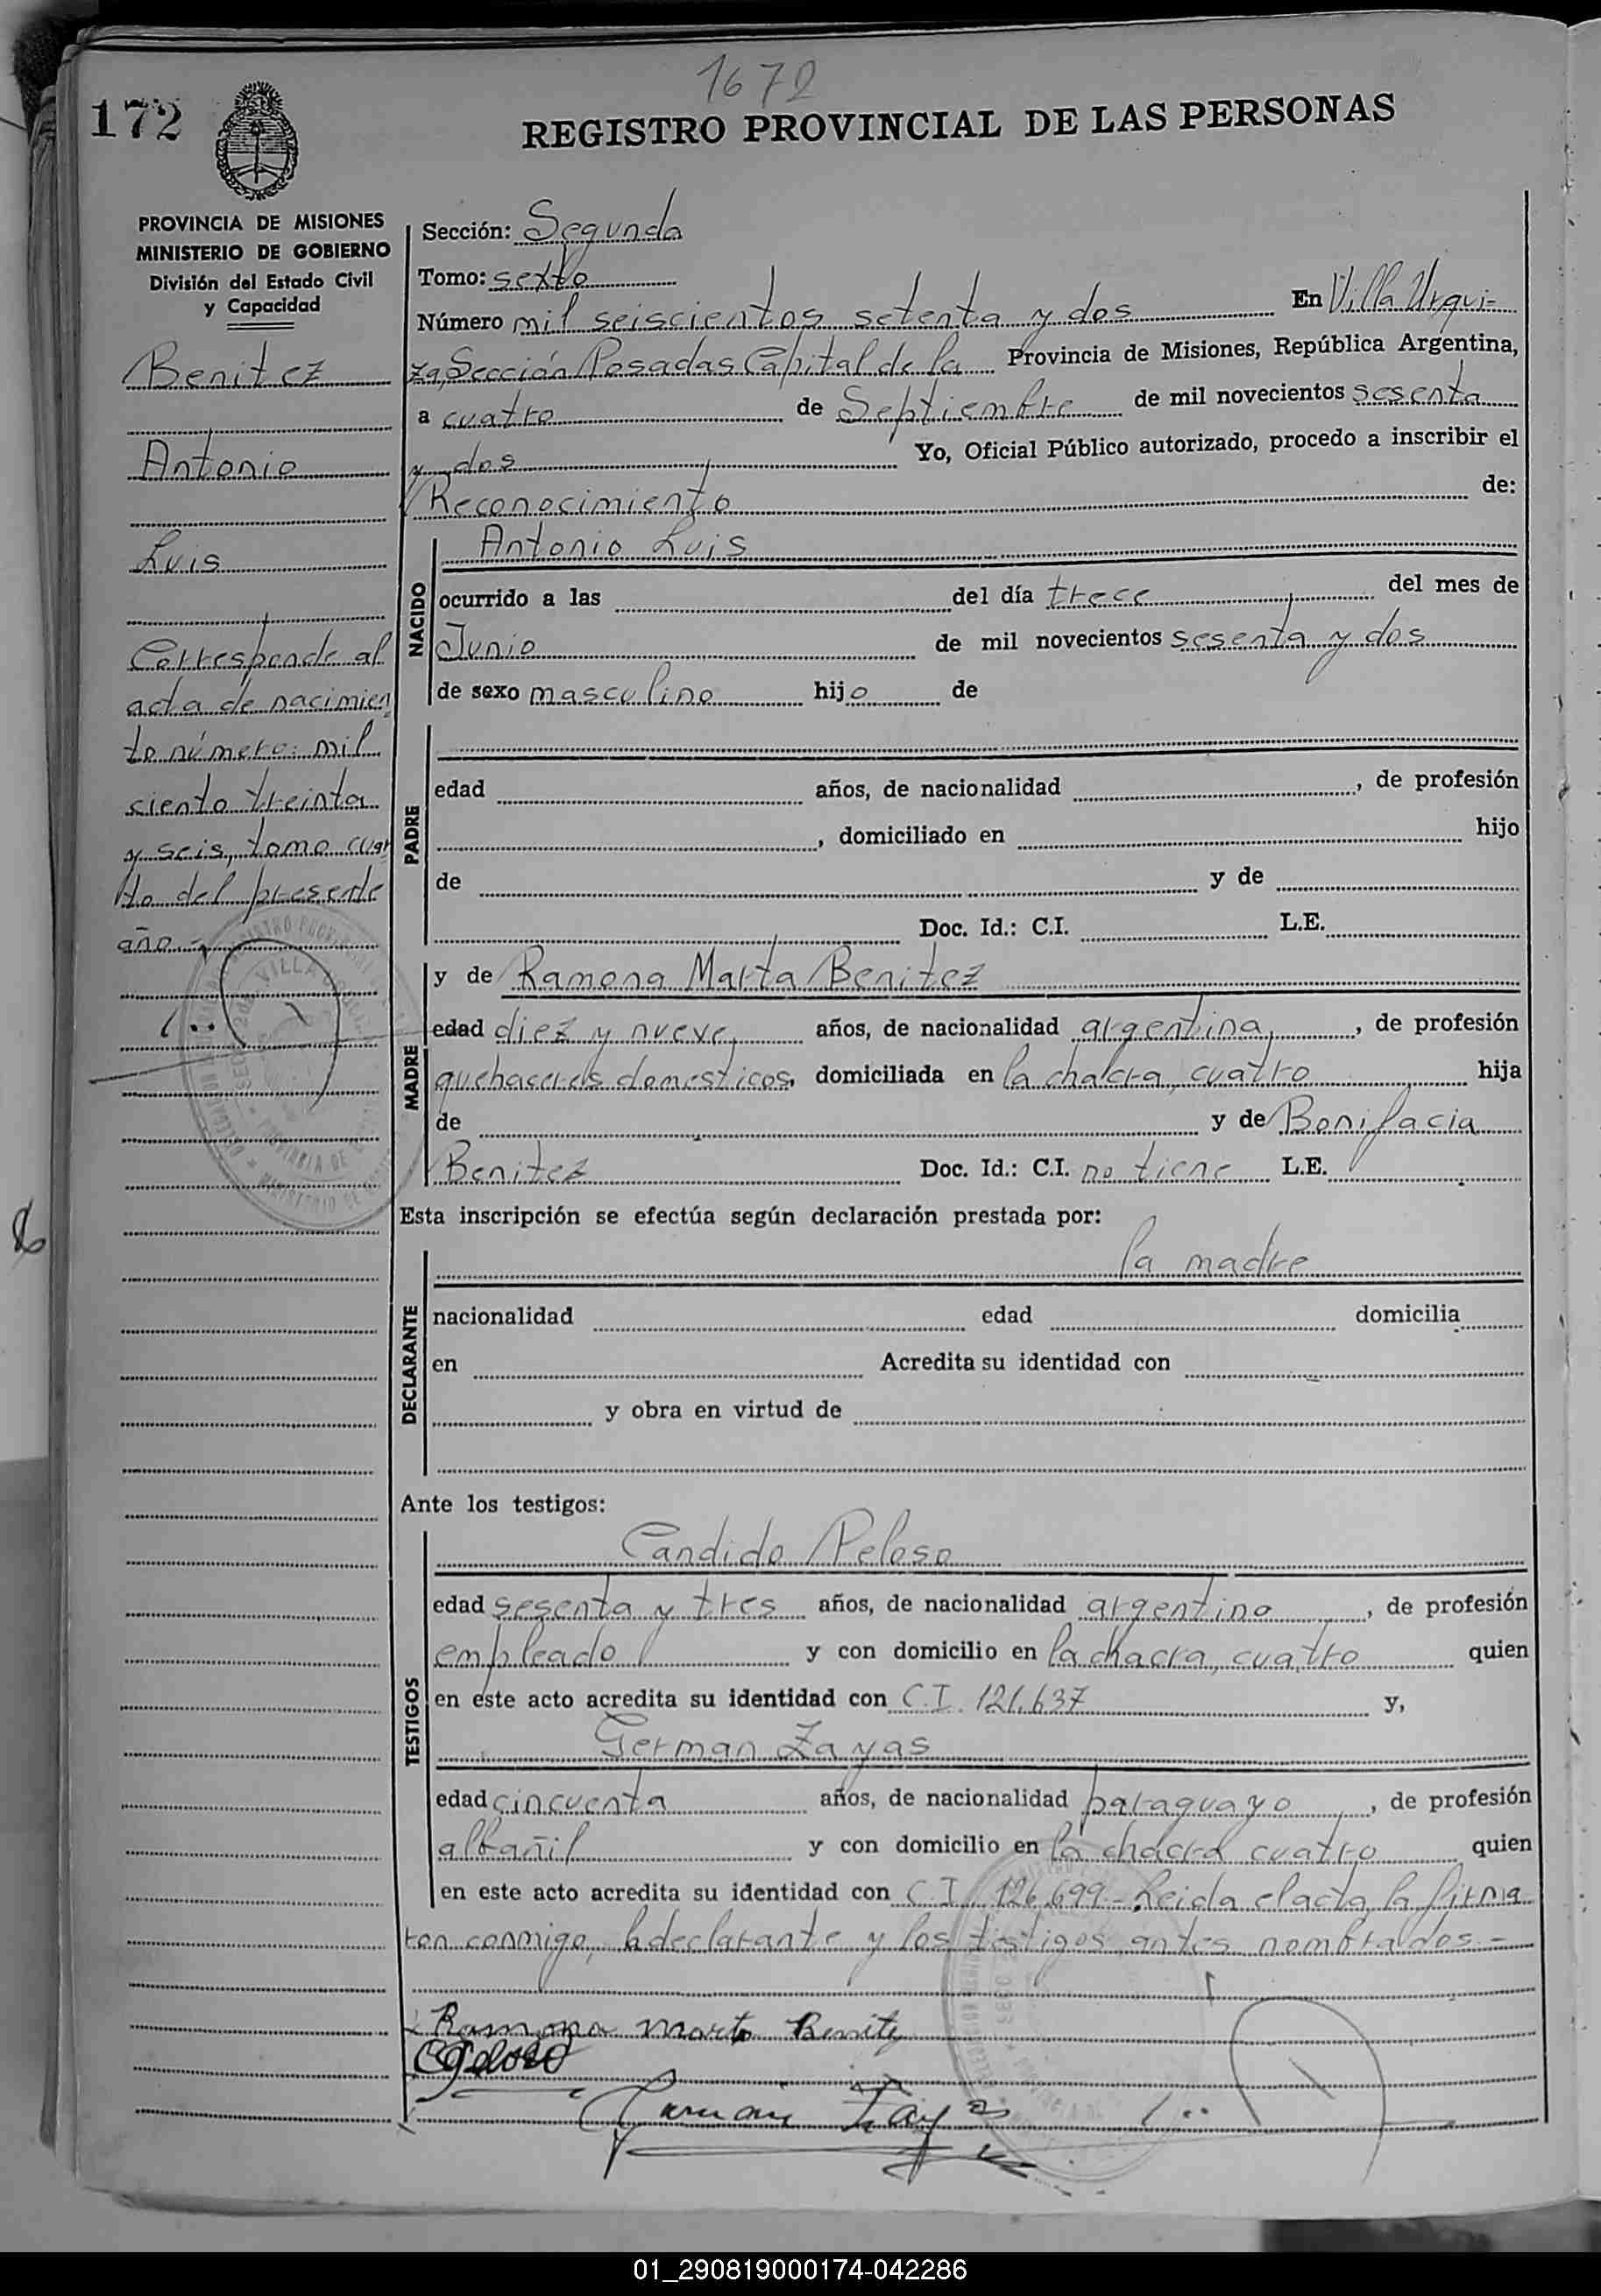 1672
172
REGISTRO PROVINCIAL DE LAS PERSONAS
PROVINCIA DE MISIONES
MINISTERIO DE GOBIERNO
División del Estado Civil
y Capacidad
Benitez
Antonio
Luis
Corresponde al
acta de nacimien
to número: mil
ciento treinta
y seis, tomo cuar
to del presente
año.-
Sección: Segunda
Tomo: sexto
Número mil seiscientos setenta y dos En Villa Urqui-
za, Sección Posadas Capital de la Provincia de Misiones, República Argentina,
a cuatro de Septiembre de mil novecientos sesenta
y dos Yo, Oficial Público autorizado, procedo a inscribir el
Reconocimiento de:
NACIDO
Antonio Luis
ocurrido a las del día trece del mes de
Junio de mil novecientos sesenta y dos
de sexo masculino hijo de
PADRE
edad años, de nacionalidad , de profesión
, domiciliado en hijo
de y de
Doc. Id.: C.I. L.E.
MADRE
y de Ramona Marta Benitez
edad diez y nueve, años, de nacionalidad argentina, , de profesión
quehaceres domesticos, domiciliada en la chacra, cuatro hija
de y de Bonifacia
Benitez Doc. Id.: C.I. no tiene L.E.
Esta inscripción se efectúa según declaración prestada por:
DECLARANTE
la madre
nacionalidad edad domicilia
en Acredita su identidad con
y obra en virtud de
Ante los testigos:
TESTIGOS
Candido Peloso
edad sesenta y tres años, de nacionalidad argentino , de profesión
empleado y con domicilio en la chacra, cuatro quien
en este acto acredita su identidad con C.I. 121.637 y,
German Zayas
edad cincuenta años, de nacionalidad paraguayo , de profesión
albañil y con domicilio en la chacra cuatro quien
en este acto acredita su identidad con C.I. 126.699 - Leida el acta, la firma
ron conmigo, la declarante y los testigos antes nombrados -
Ramona Marta Benitez
CPeloso
German Zayas
01_290819000174-042286